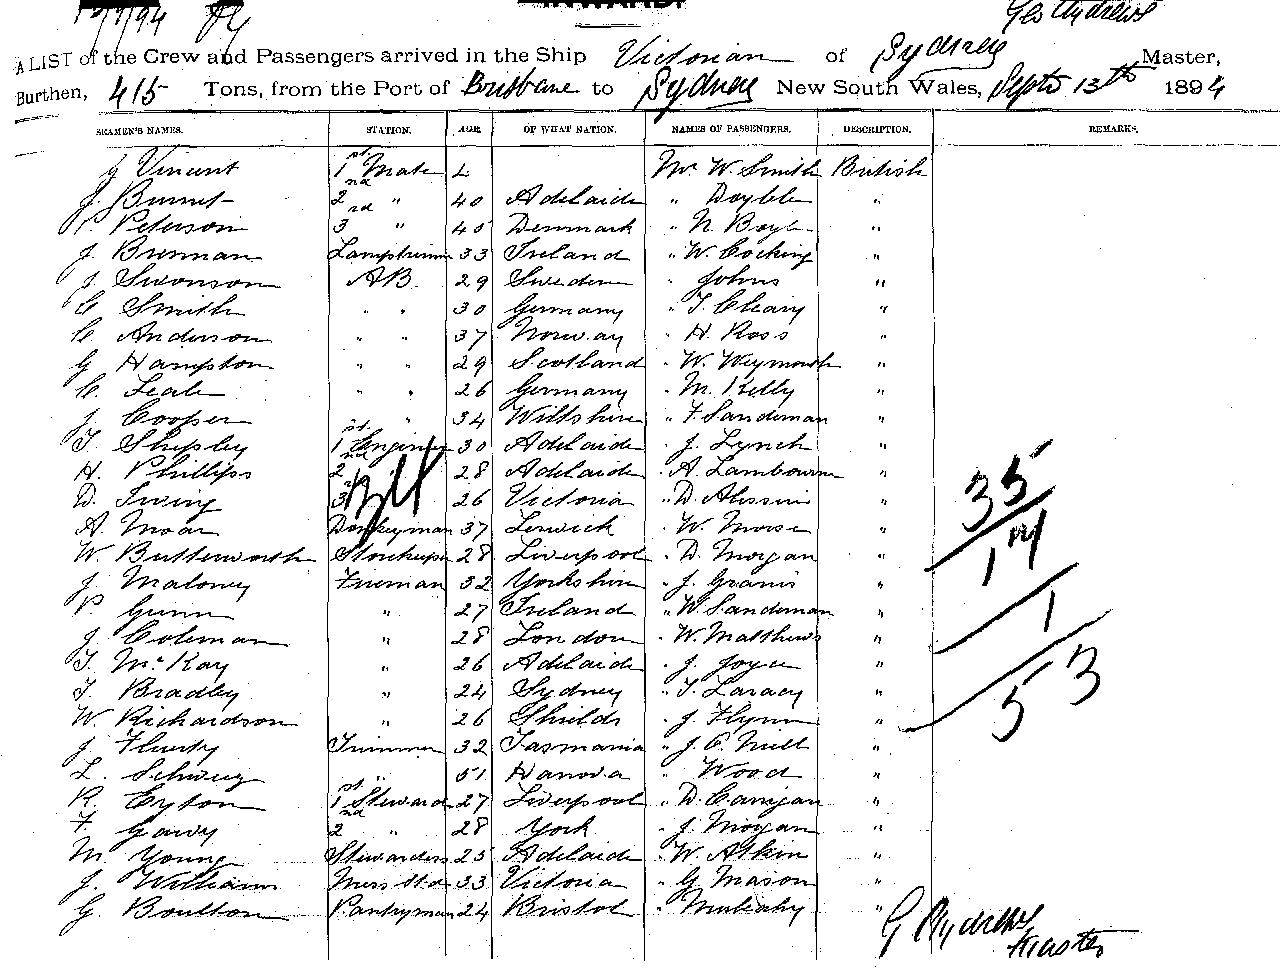 13/9/94
INWARDS.
Geo Andrews
A LIST of the Crew and Passengers arrived in the Ship Victorian of Sydney Master,
Burthen, 415 Tons, from the Port of Brisbane to Sydney New South Wales, Septr 13th 1894
SEAMEN'S NAMES. STATION. AGE. OF WHAT NATION. NAMES OF PASSENGERS. DESCRIPTION. REMARKS.
J Vincent 1st Mate Mr W. Smith British
J. Burnet 2nd " 40 Adelaide " Doyble "
P. Peterson 3rd " 45 Denmark " N. Boyle "
J. Brennan Lamptrimmer 33 Ireland " W. Cocking "
J. Swonson AB 29 Sweden " Johns "
C Smith " " 30 Germany " T. Cleary "
C. Anderson " " 37 Norway " H. Ross "
G Hampton " " 29 Scotland " W. Weymouth "
C. Leale " " 26 Germany " M. Kelly "
J. Cooper " " 34 Wiltshire " F. Sandeman "
T. Shipley 1st Engineer 30 Adelaide " J. Lynch "
H. Phillips 2nd " 28 Adelaide " A. Lambourn "
D. Irving 3rd 26 Victoria " D. Alessini "
A. Moar Donkeyman 37 Lerwick " W. Morse "
W. Butterworth Storekeeper 28 Liverpool " D. Morgan "
J. Maloney Fireman 32 Yorkshire " J. Granis "
P Gunn " 27 Ireland " W. Sandeman "
J. Coleman " 28 London " W. Matthews "
T. McKay " 26 Adelaide " J. Joyce "
T. Bradley " 24 Sydney " T. Laracy "
W. Richardson " 26 Shields " J. Flynn "
J. Fluerty Trimmer 32 Tasmania " J. P. Niell "
L. Schweig " 51 Hanova " Wood "
R. Eyton 1st Steward 27 Liverpool " D. Carrigan "
F. Garvy 2nd " 28 York " J. Morgan "
M Young Stewardess 25 Adelaide " W. Atkin "
J. William Mess Std 33 Victoria " G Mason "
G. Boulton Pantryman 24 Bristol " Mulcahy "
35
17
1
53
G Andrews
Master